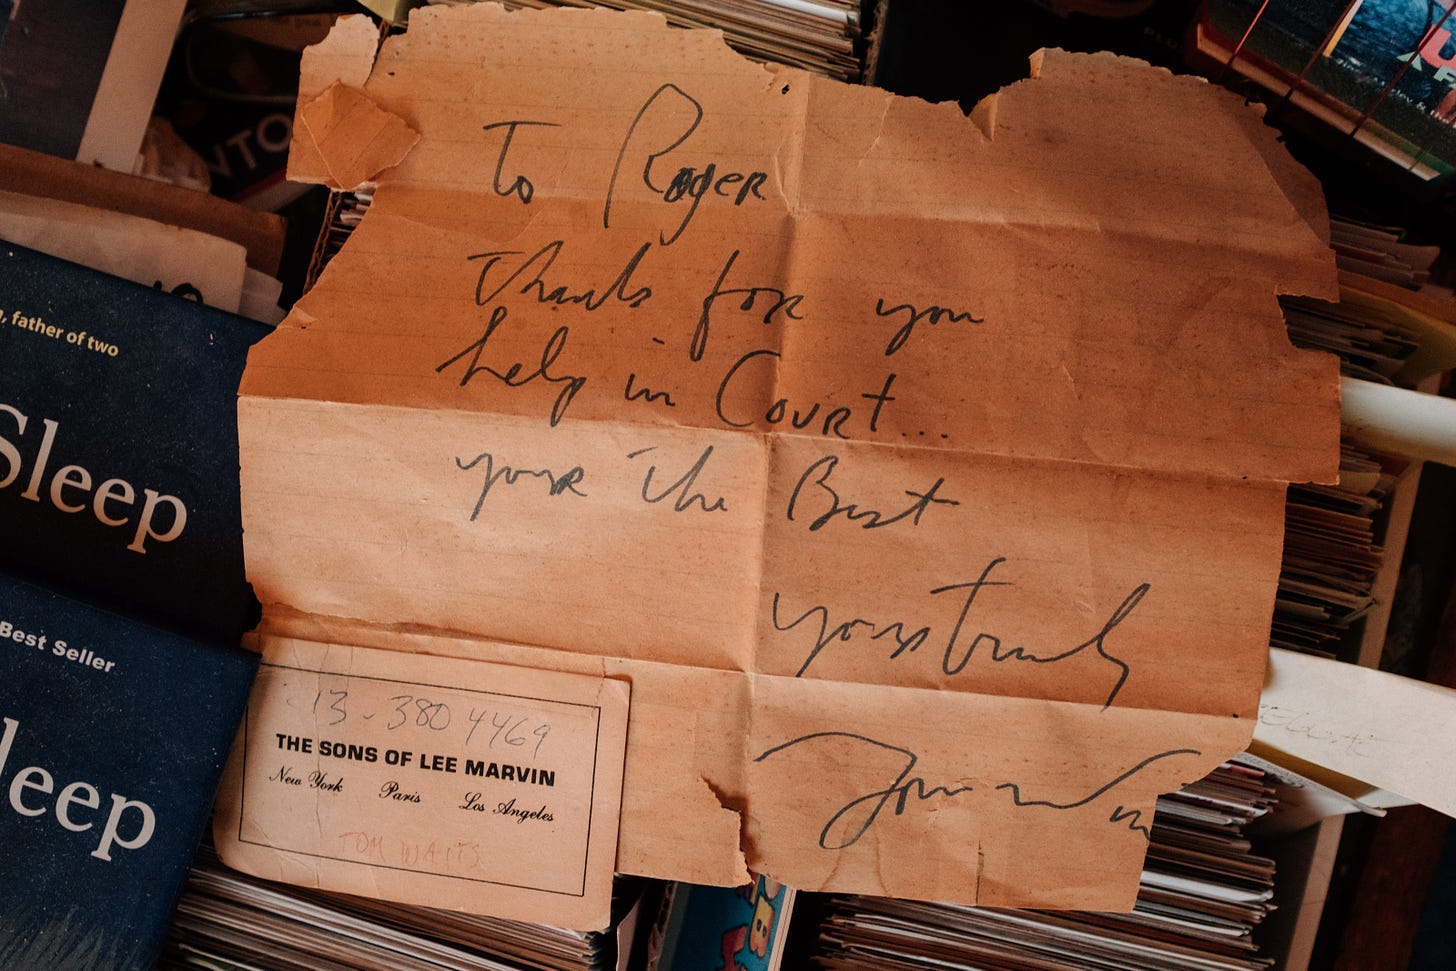 To Roger
Thanks for you
help in Court...
your The Best
yours truly
Tom Wai
13-380 4469
THE SONS OF LEE MARVIN
New York Paris Los Angeles
TOM WAITS
, father of two
Sleep
Best Seller
leep
NTO